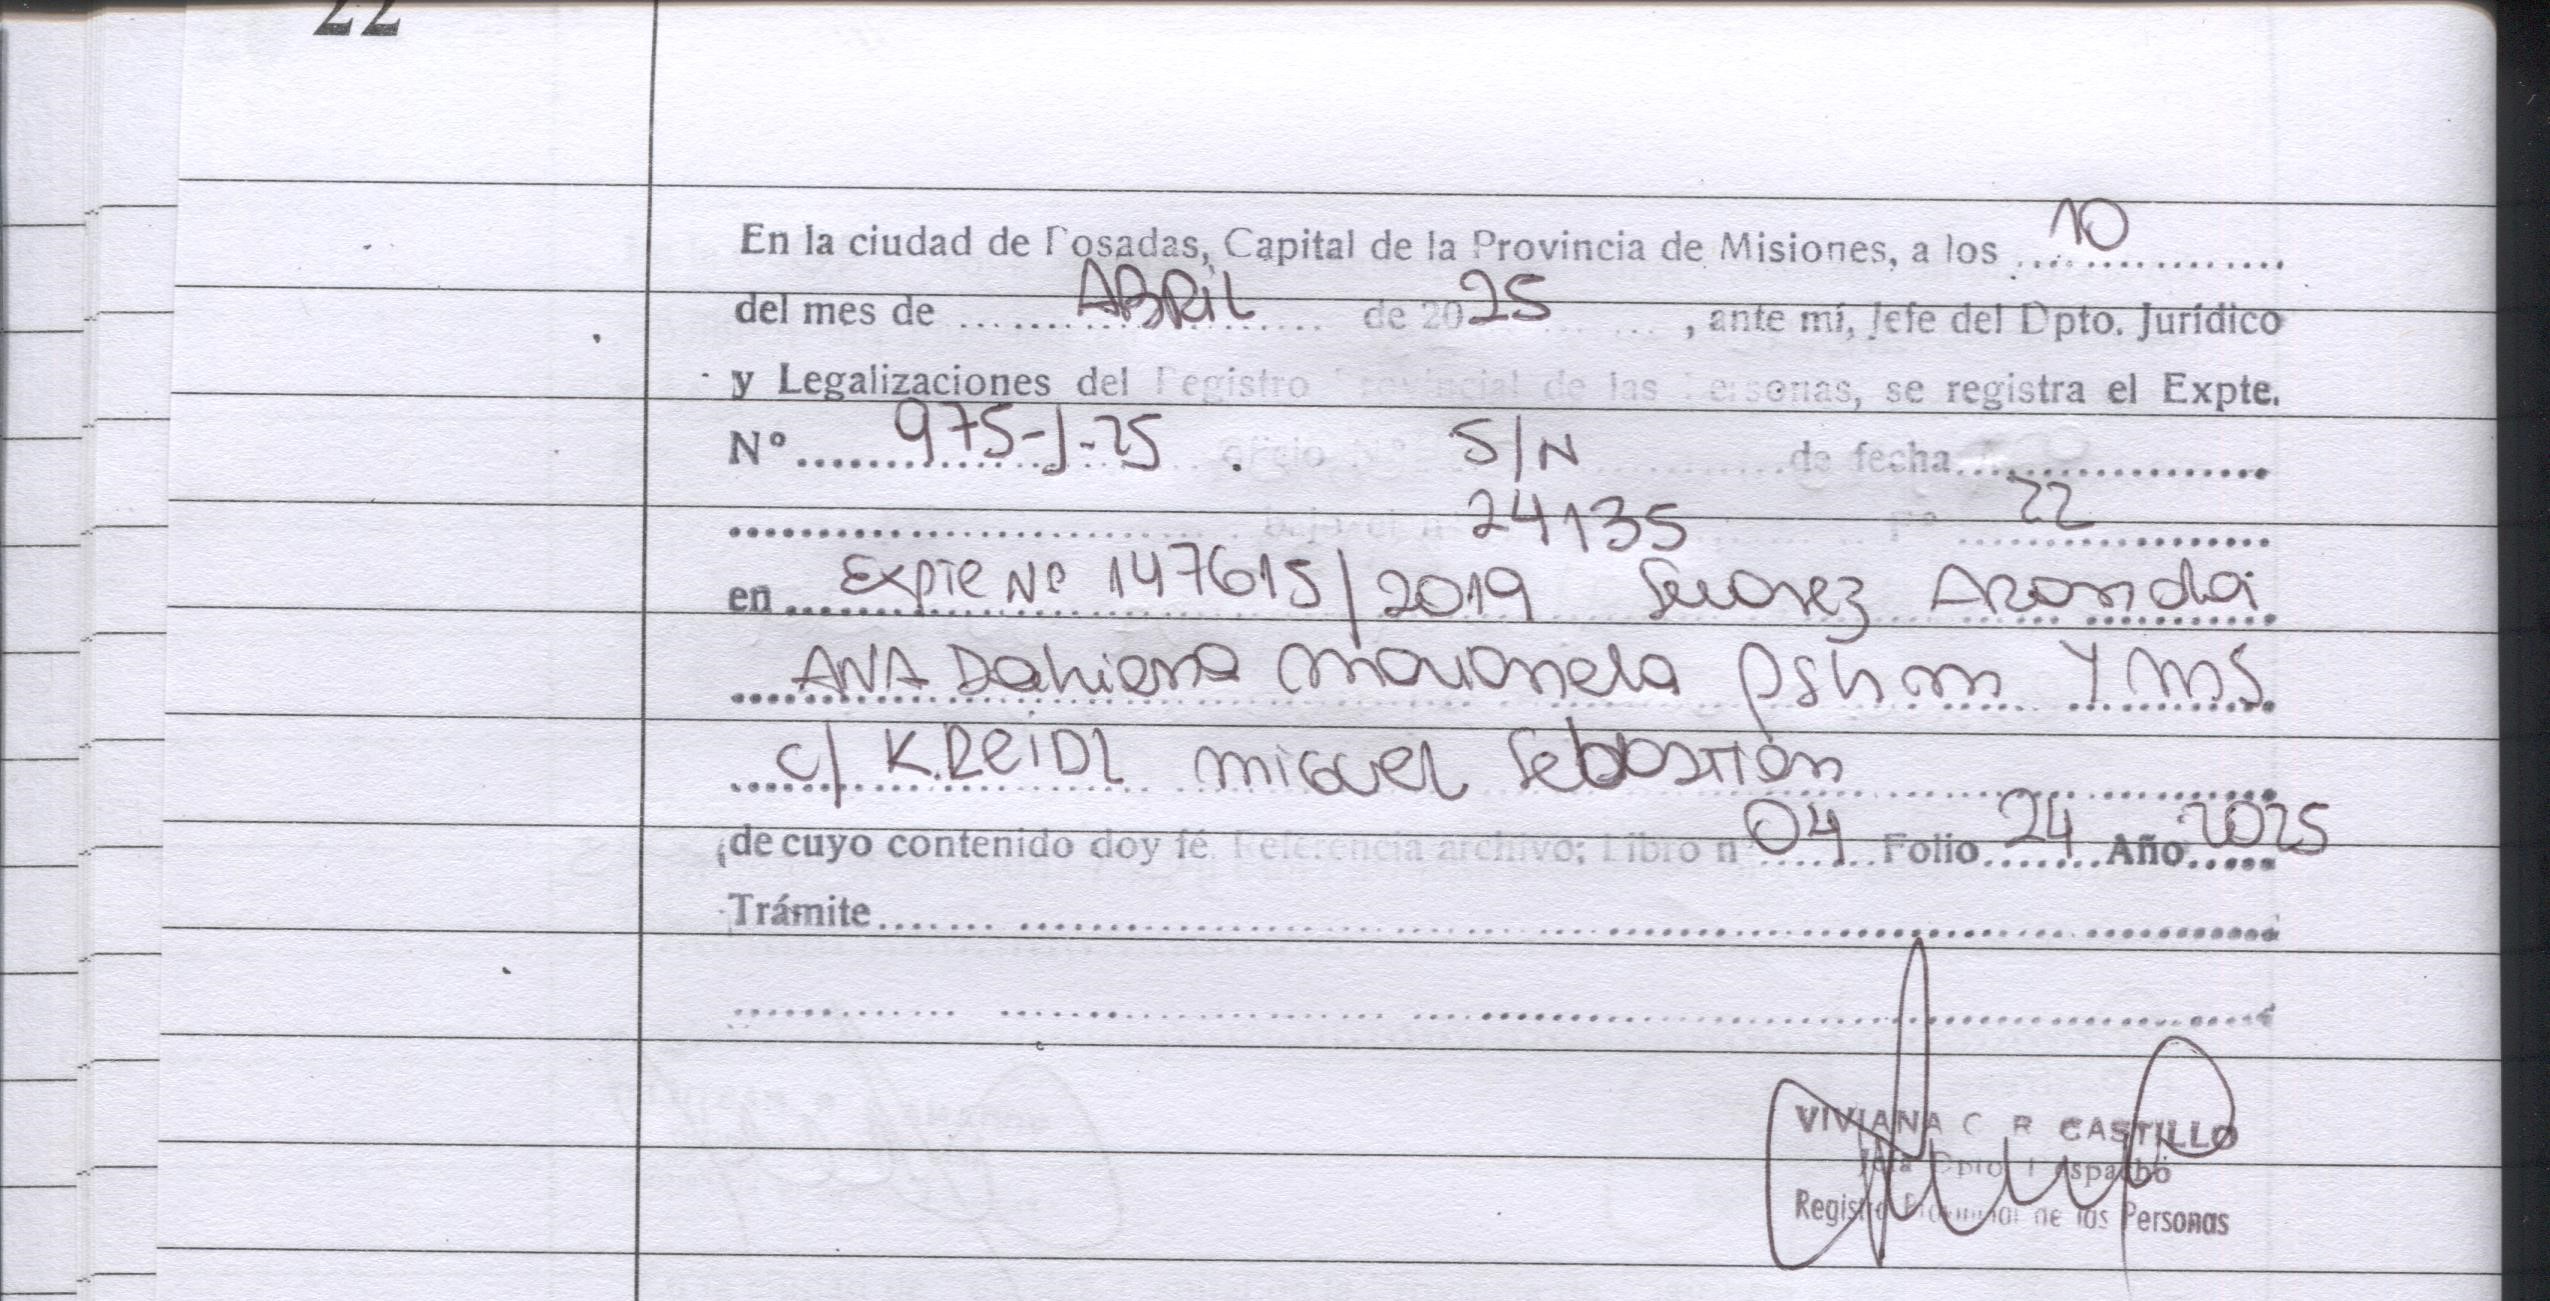 22
En la ciudad de Posadas, Capital de la Provincia de Misiones, a los 10
del mes de ABRIL de 2025, ante mí, Jefe del Dpto. Jurídico
y Legalizaciones del Registro Provincial de las Personas, se registra el Expte.
Nº 975-J-25 oficio Nº S/N de fecha
24135 Fº 22
en Expte Nº 147615/2019 Suarez Aranda
ANA Dahiana Marianela pshm Y.M.S.
c/ KREIDL Miguel Sebastián
de cuyo contenido doy fé. Referencia archivo: Libro n 04 Folio 24 Año 2025
Trámite
VIVIANA C R CASTILLO
Jefa Dpto Despacho
Registro Provincial de las Personas